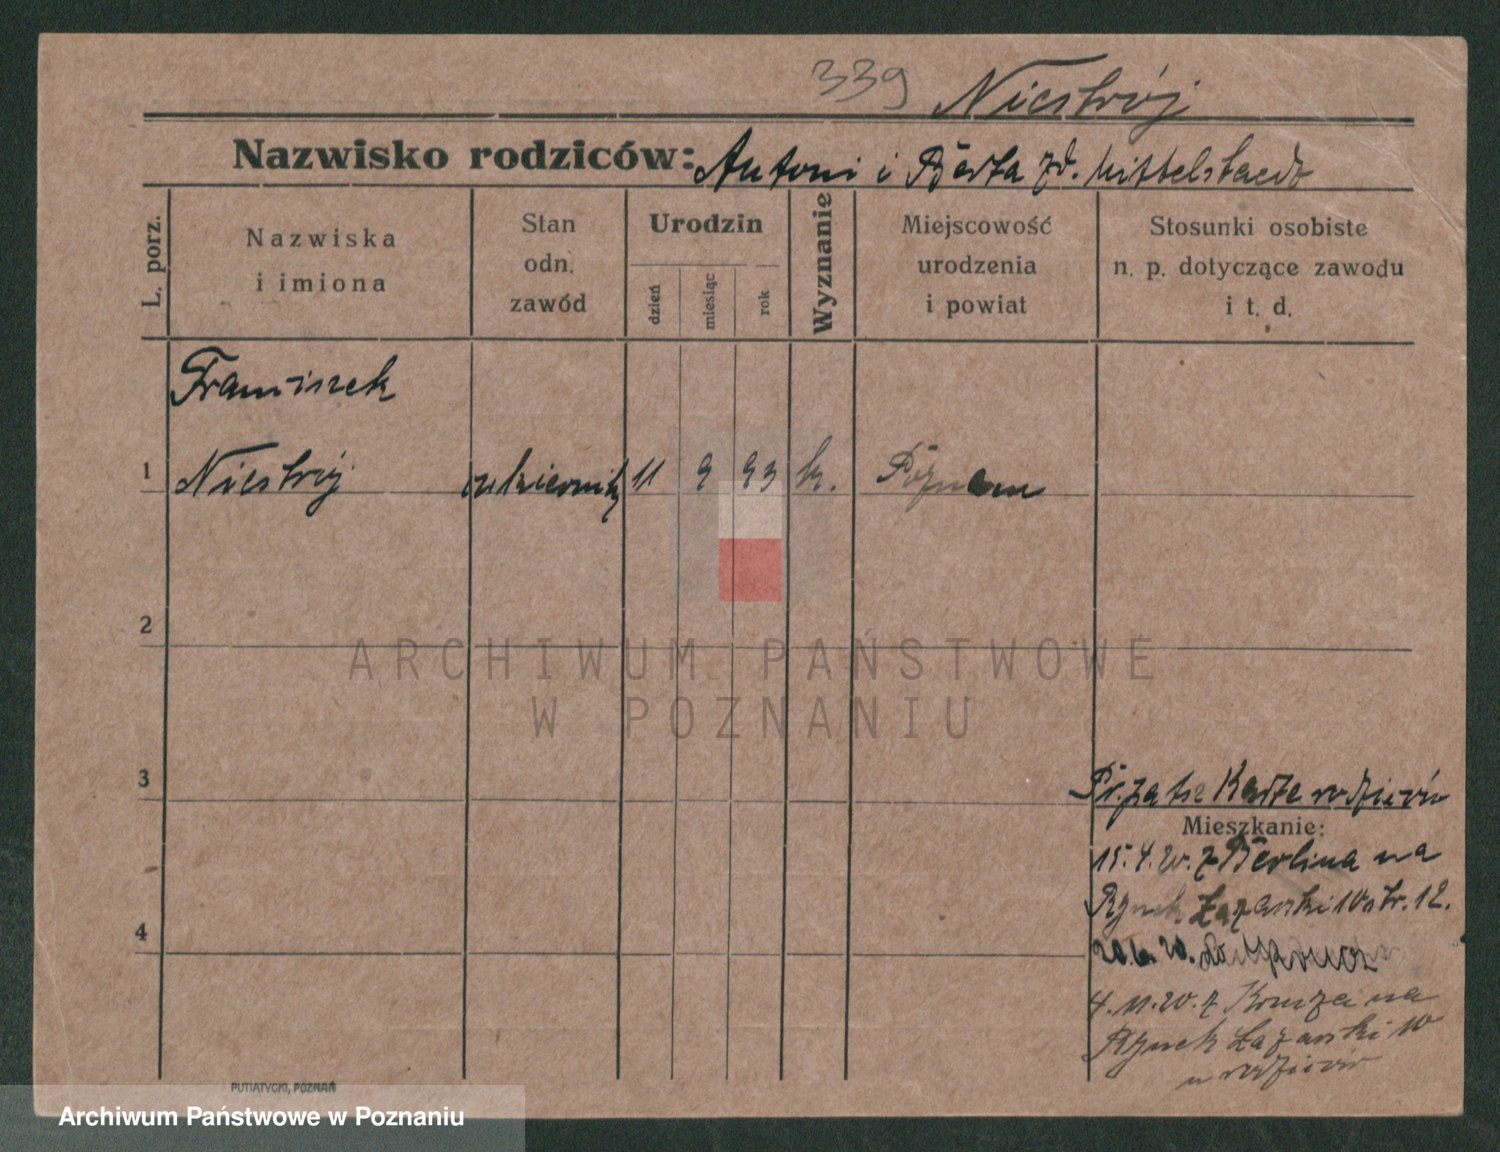 339 Niestrój
Nazwisko rodziców: Antoni i Berta zd. Mittelstaedt
L. porz.
Nazwiska
i imiona
Stan
odn.
zawód
Urodzin
dzień
miesiąc
rok
Wyznanie
Miejscowość
urodzenia
i powiat
Stosunki osobiste
n. p. dotyczące zawodu
i t. d.
Franciszek
1 Niestrój 11 9 93 k. Poznań
2
ARCHIWUM PAŃSTWOWE
W POZNANIU
3
Karta rodziców
Mieszkanie:
15.4.20. z Berlina na
Rynek Łazarski 10 tr. 12.
4
20.6.20.
4.11.20. z na
Rynek Łazarski 10
u rodziców
PUTIATYCKI, POZNAŃ
Archiwum Państwowe w Poznaniu